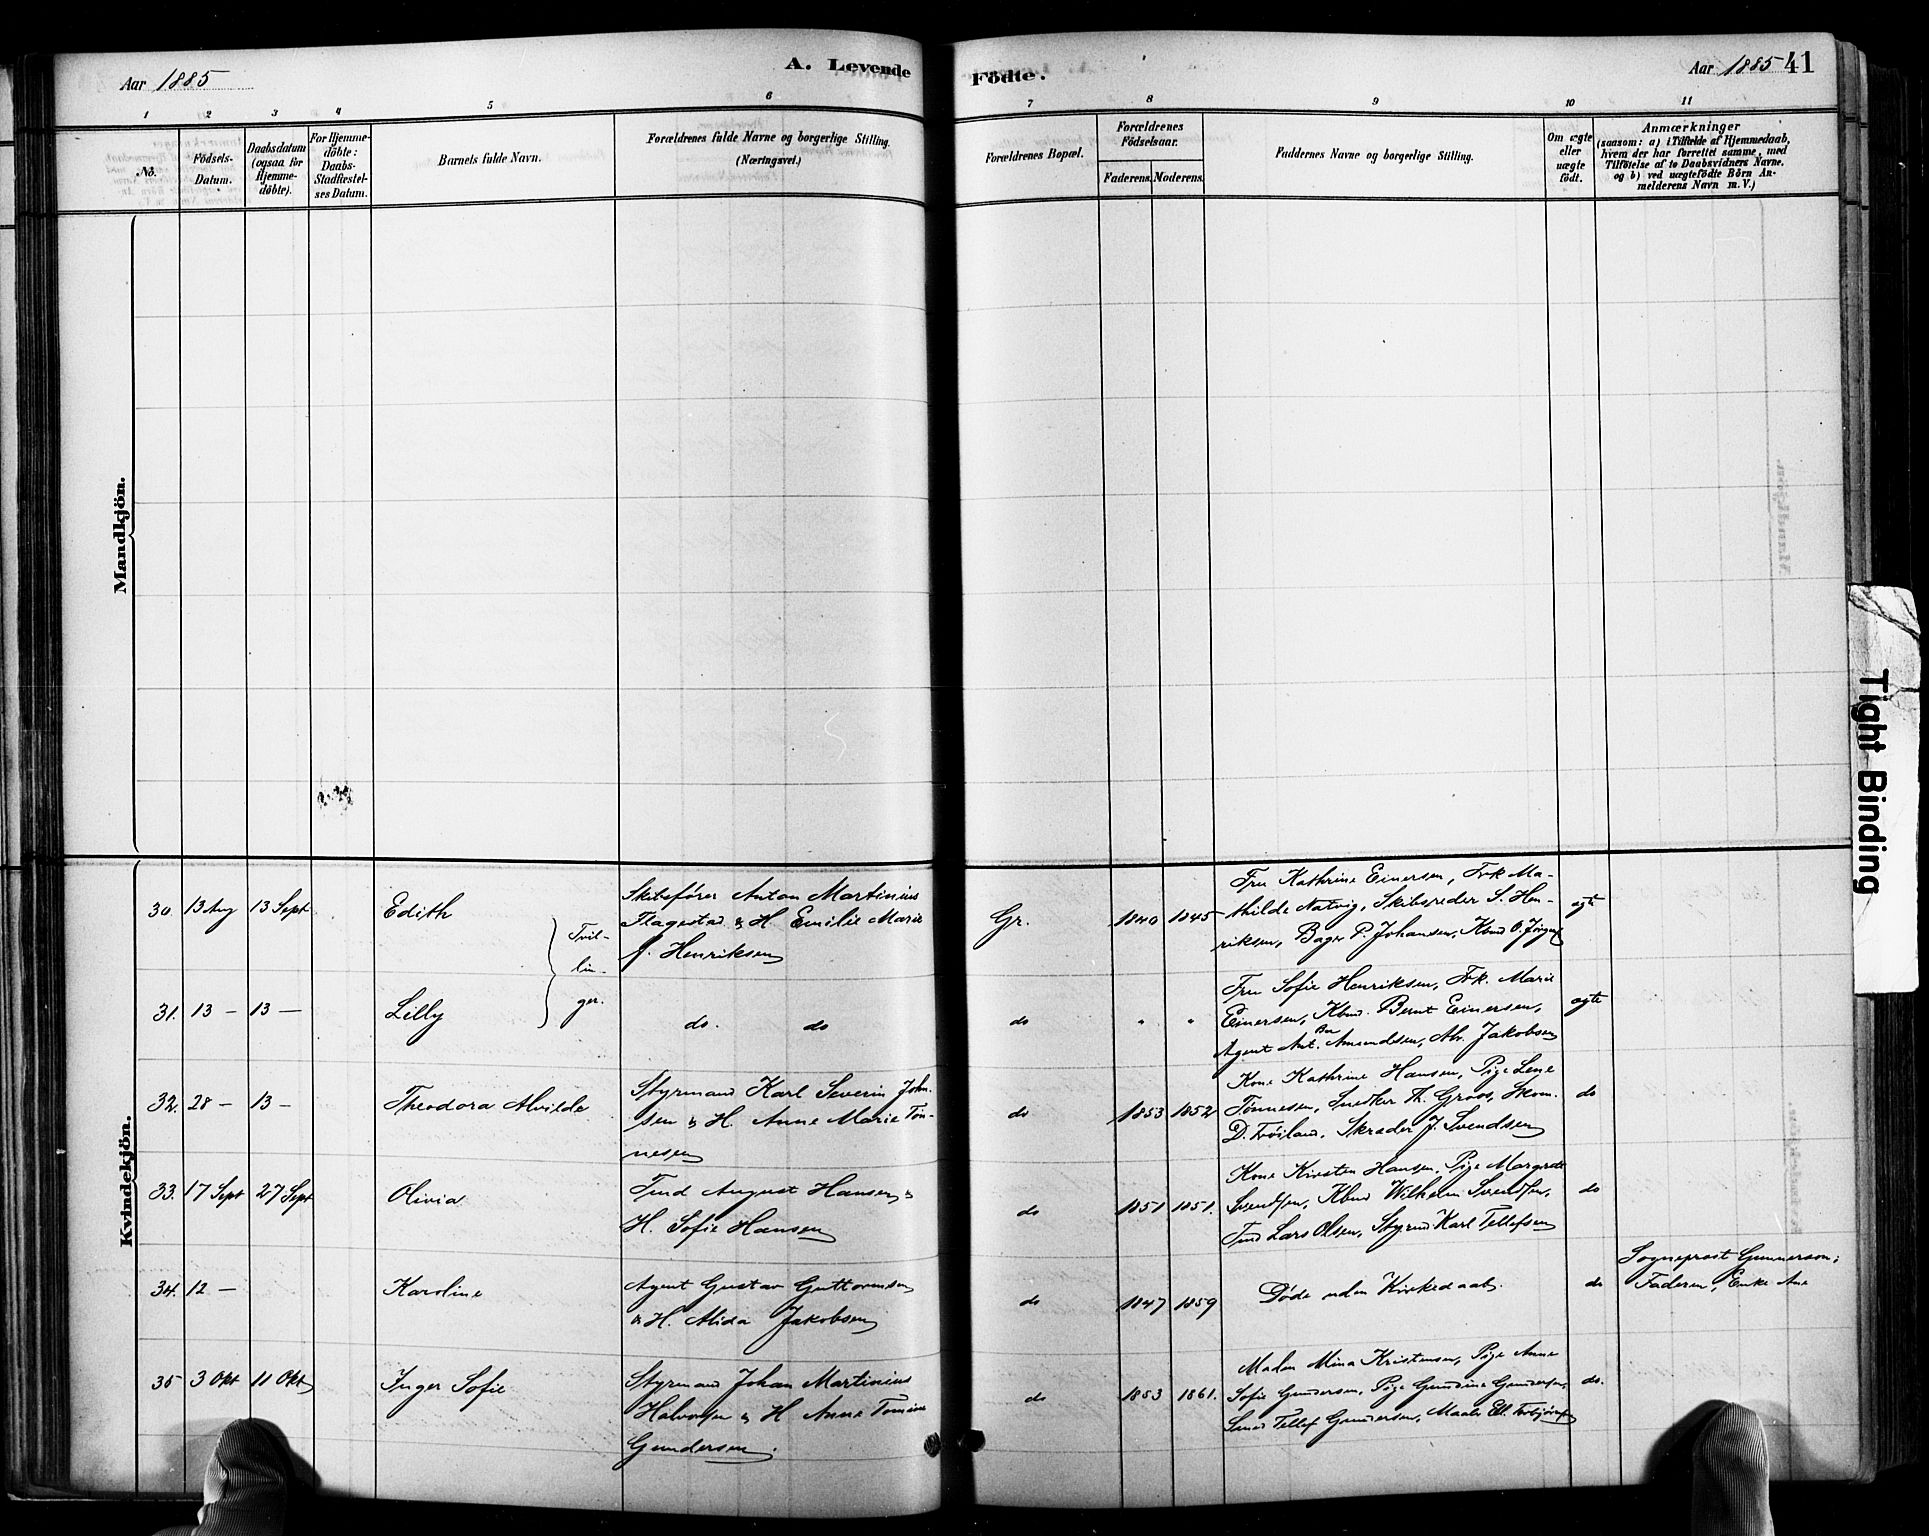 Aar 1885
A. Levende
Födte.
Aar 1885
41
1 2 3 4 5 6 7 8 9 10 11
No.
Födsels-
Datum.
Daabsdatum
(ogsaa for
Hjemme-
döbte).
For Hjemme-
döbte:
Daabs-
Stadfæstel-
ses Datum.
Barnets fulde Navn.
Forældrenes fulde Navne og borgerlige Stilling.
(Næringsvei.)
Forældrenes Bopæl.
Forældrenes
Födselsaar.
Faderens. Moderens.
Faddernes Navne og borgerlige Stilling.
Om ægte
eller
uægte
födt.
Anmærkninger
(saasom: a) i Tilfælde af Hjemmedaab,
hvem der har forrettet samme, med
Tilföielse af to Daabsvidners Navne.
og b) ved uægtefödte Börn An-
melderens Navn m. V.)
Mandkjön.
Kvindekjön.
30. 13 Aug 13 Sept
Edith
Tvil-
lin-
ger.
Skibsfører Anton Martinius
Flagestad & H. Emilie Marie
f. Henriksen
Gr.
1840 1845
Fru Kathrine Einersen, Frk Ma-
thilde Natvig, Skibsreder S. Hen-
riksen, Bager P. Johansen, Kbmd O. Jörgens
ægte
31. 13 — 13 —
Lilly
do. do
do
" "
Fru Sofie Henriksen, Frk. Marie
Einersen, Kbmd. Bernt Einersen,
Agent Ant. Amundsen, Alv. Jakobsen
ægte
32. 28 — 13 —
Theodora Alvilde
Styrmand Karl Severin John-
sen & H. Anne Marie Tøn-
nesen
do
1853 1852
Kone Kathrine Hansen, Pige Lene
Tønnesen, Snedker Th. Groos, Skom.
D. Frøiland, Skræder J. Svendsen
do
33. 17 Sept 27 Sept
Olivia
Tmd August Hansen &
H. Sofie Hansen
do
1851 1851.
Kone Kirsten Hansen, Pige Margrete
Svendsen, Kbmd Wilhelm Svendsen,
Tmd Lars Olsen, Styrmd Karl Tellefsen
do
34. 12 —
Karoline
Agent Gustav Guttormsen
& H. Alida Jakobsen
do
1847 1859
Døde uden Kirkedaab.
do
Sogneprest Gunnerson;
Faderen, Enke Ane
35 3 Okt 11 Okt
Inger Sofie
Styrmand Johan Martinius
Halvorsen & H Anne Tomine
Gundersen.
do
1853 1861.
Madm Mina Kristensen, Pige Anne
Sofie Gundersen, Pige Gundine Gundersen,
Tellef Gundersen, Maler El. Torbjørns
do.
Tight Binding